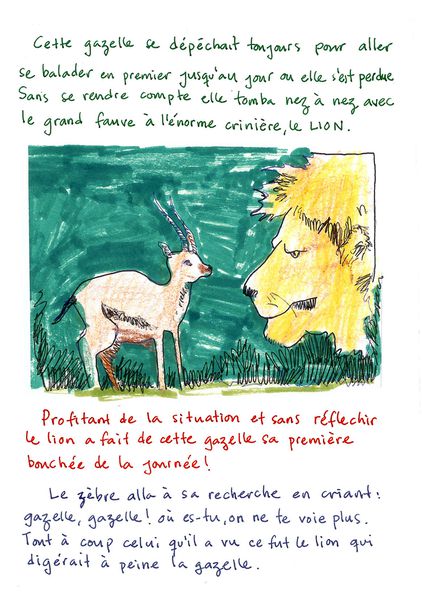 Cette gazelle se dépéchait toujours pour aller
se balader en premier jusqu'au jour ou elle s'est perdue
Sans se rendre compte elle tomba nez à nez avec
le grand fauve à l'énorme crinière, le LION.
Profitant de la situation et sans réflechir
le lion a fait de cette gazelle sa première
bouchée de la journée!
Le zèbre alla à sa recherche en criant:
gazelle, gazelle! où es-tu, on ne te voie plus.
Tout à coup celui qu'il a vu ce fut le lion qui
digérait à peine la gazelle.